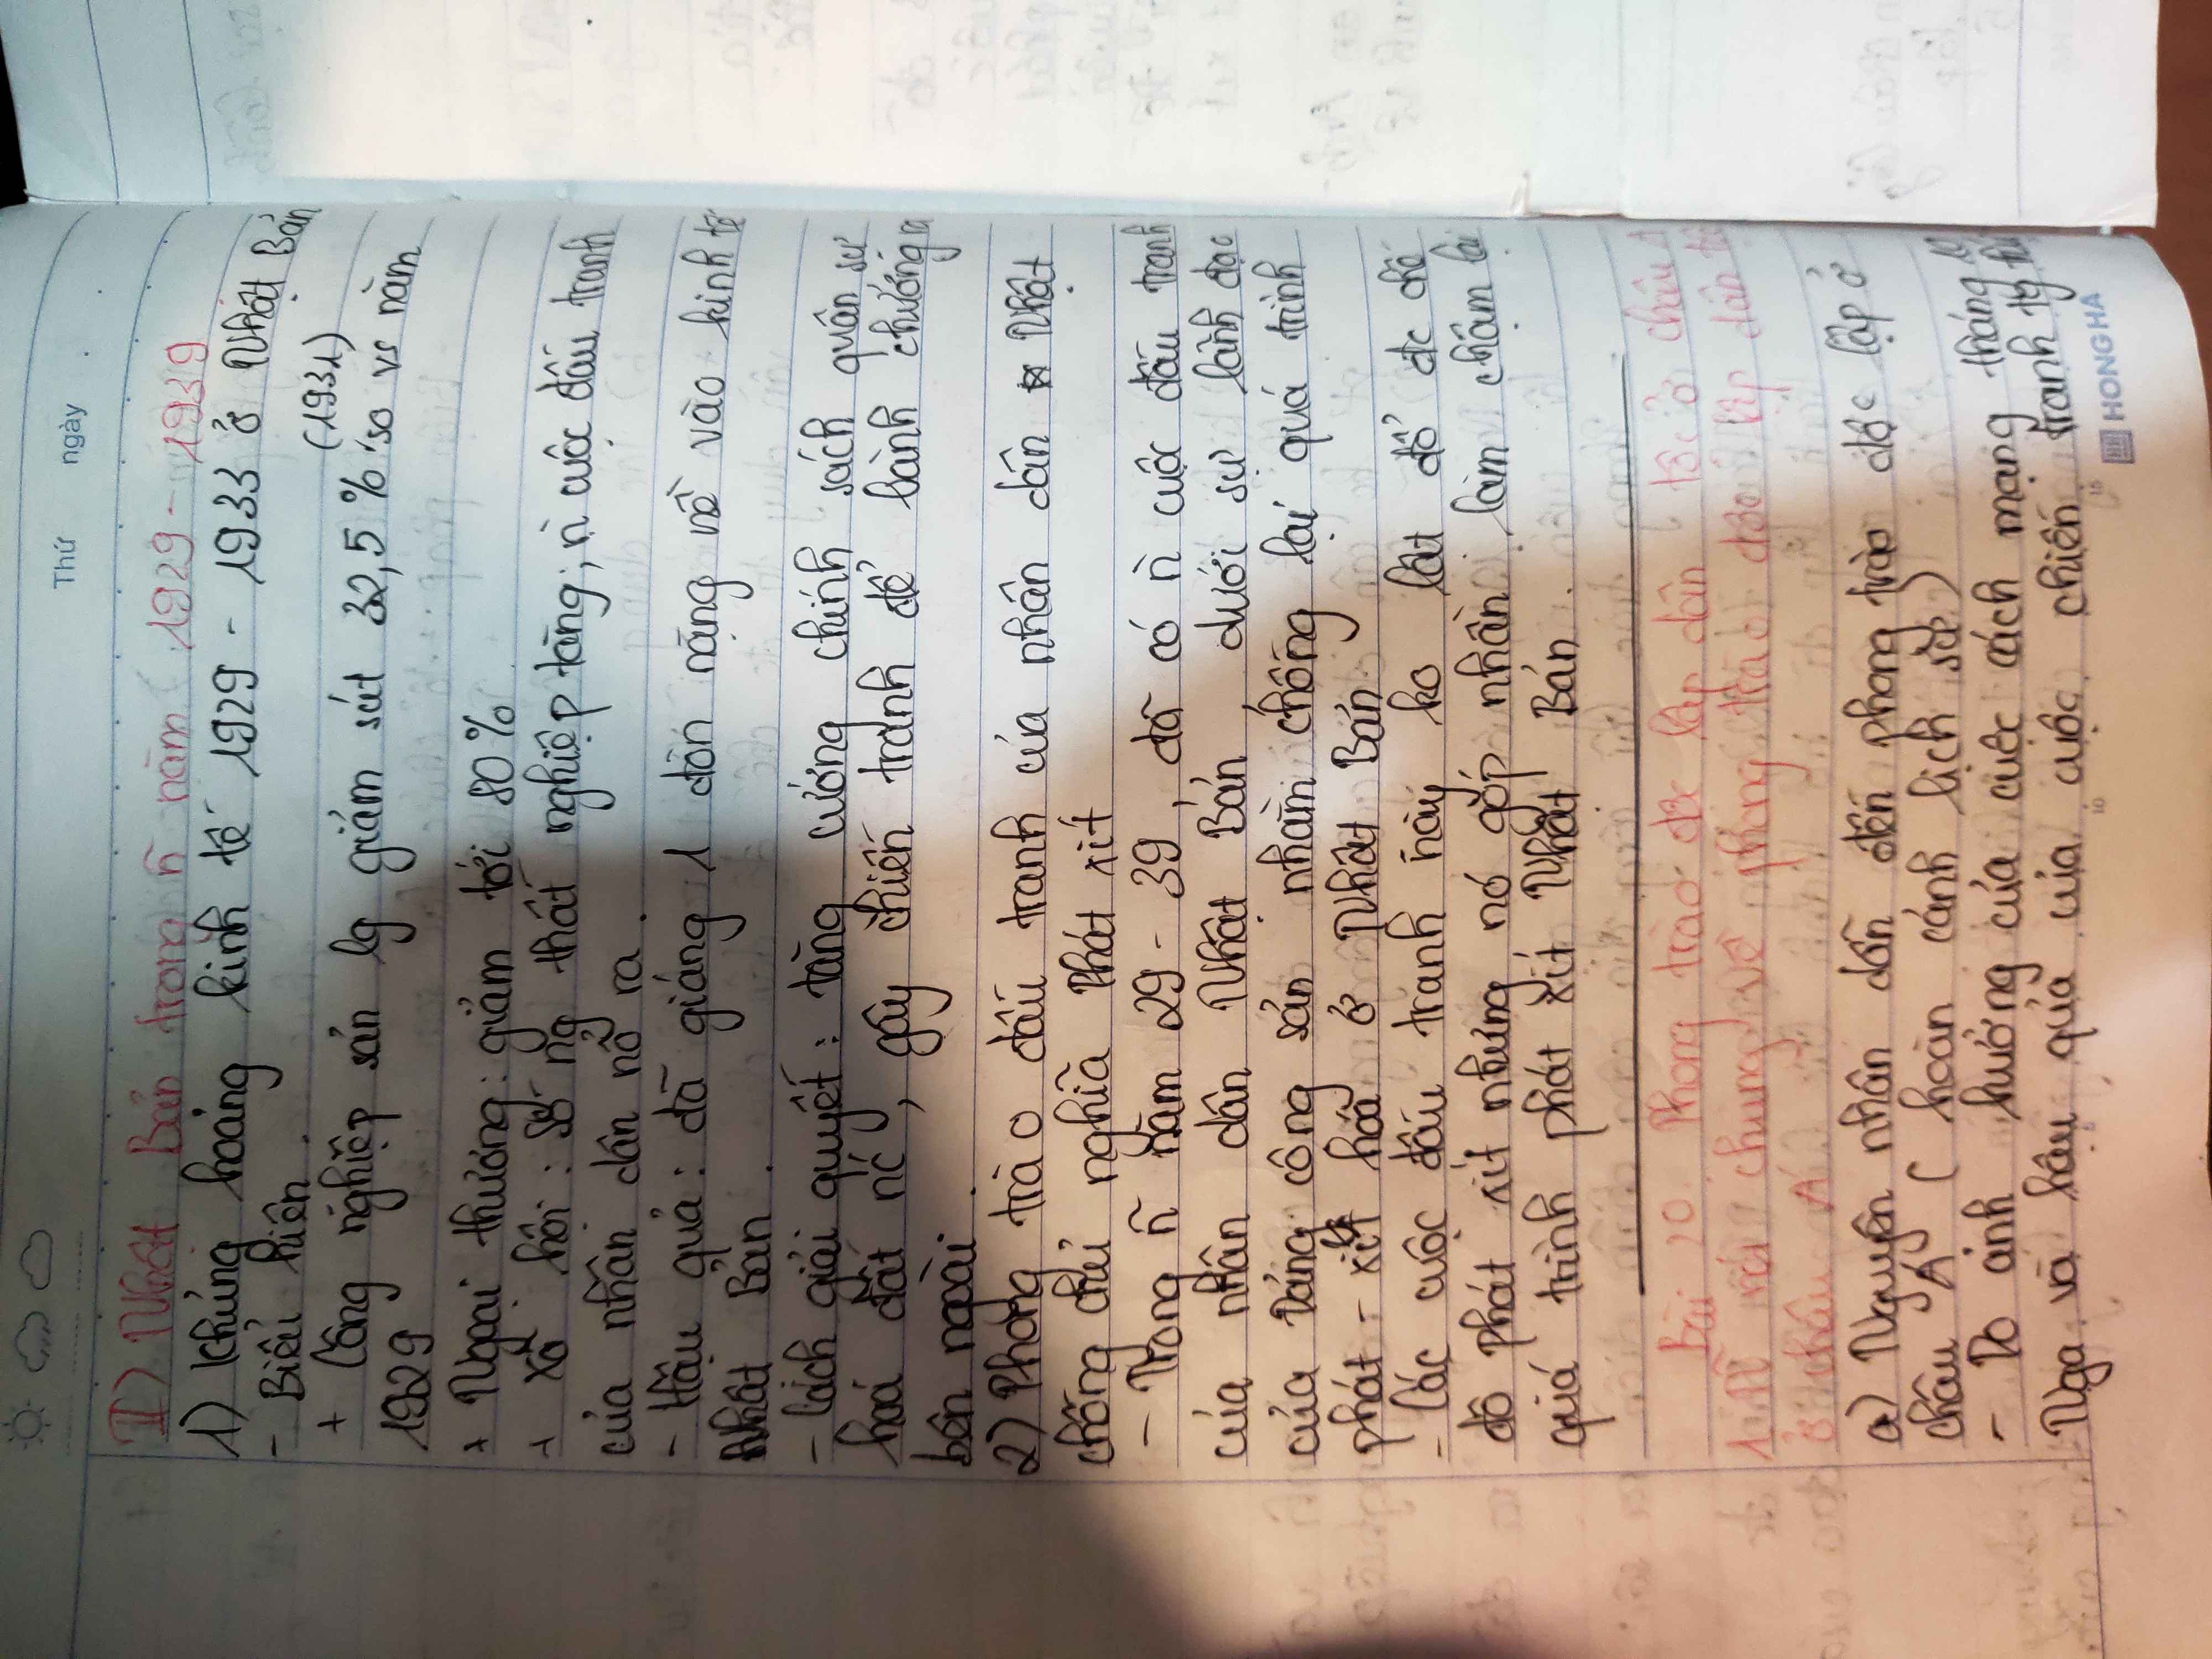 Thứ ngày
II) Nhật Bản trong ñ năm ( 1929 - 1939
1) Khủng hoảng kinh tế 1929 - 1933 ở Nhật Bản
- Biểu hiện
+ Công nghiệp sản lg giảm sút 32,5 % so vs năm (1931)
1929
+ Ngoại thương: giảm tới 80 %
+ Xã hội : số ng thất nghiệp tăng; ñ cuộc đấu tranh
của nhân dân nổ ra.
- Hậu quả : đã giáng 1 đòn nặng nề vào kinh tế
Nhật Bản.
- Cách giải quyết : tăng cường chính sách quân sự
hoá đất nc , gây chiến tranh để bành chướng ra
bên ngoài.
2) Phong trào đấu tranh của nhân dân Nhật
chống chủ nghĩa Phát xít
- Trong ñ năm 29 - 39, đã có ñ cuộc đấu tranh
của nhân dân Nhật Bản dưới sự lãnh đạo
của Đảng cộng sản nhằm chống lại quá trình
phát - xít hoá ở Nhật Bản
- Các cuộc đấu tranh này ko lật đổ đc chế
độ phát xít nhưng nó góp nhần làm chậm lại
quá trình phát xít Nhật Bản.
Bài 20 Phong trào độc lập dân tộc ở châu Á
1. ñ nét chung về phong trào độc lập dân tộc
ở châu Á
a) Nguyên nhân dẫn đến phong trào độc lập ở
châu Á ( hoàn cảnh lịch sử )
- Do ảnh hưởng của cuộc cách mạng tháng 10
Nga và hậu quả của cuộc chiến tranh tg
HONG HA